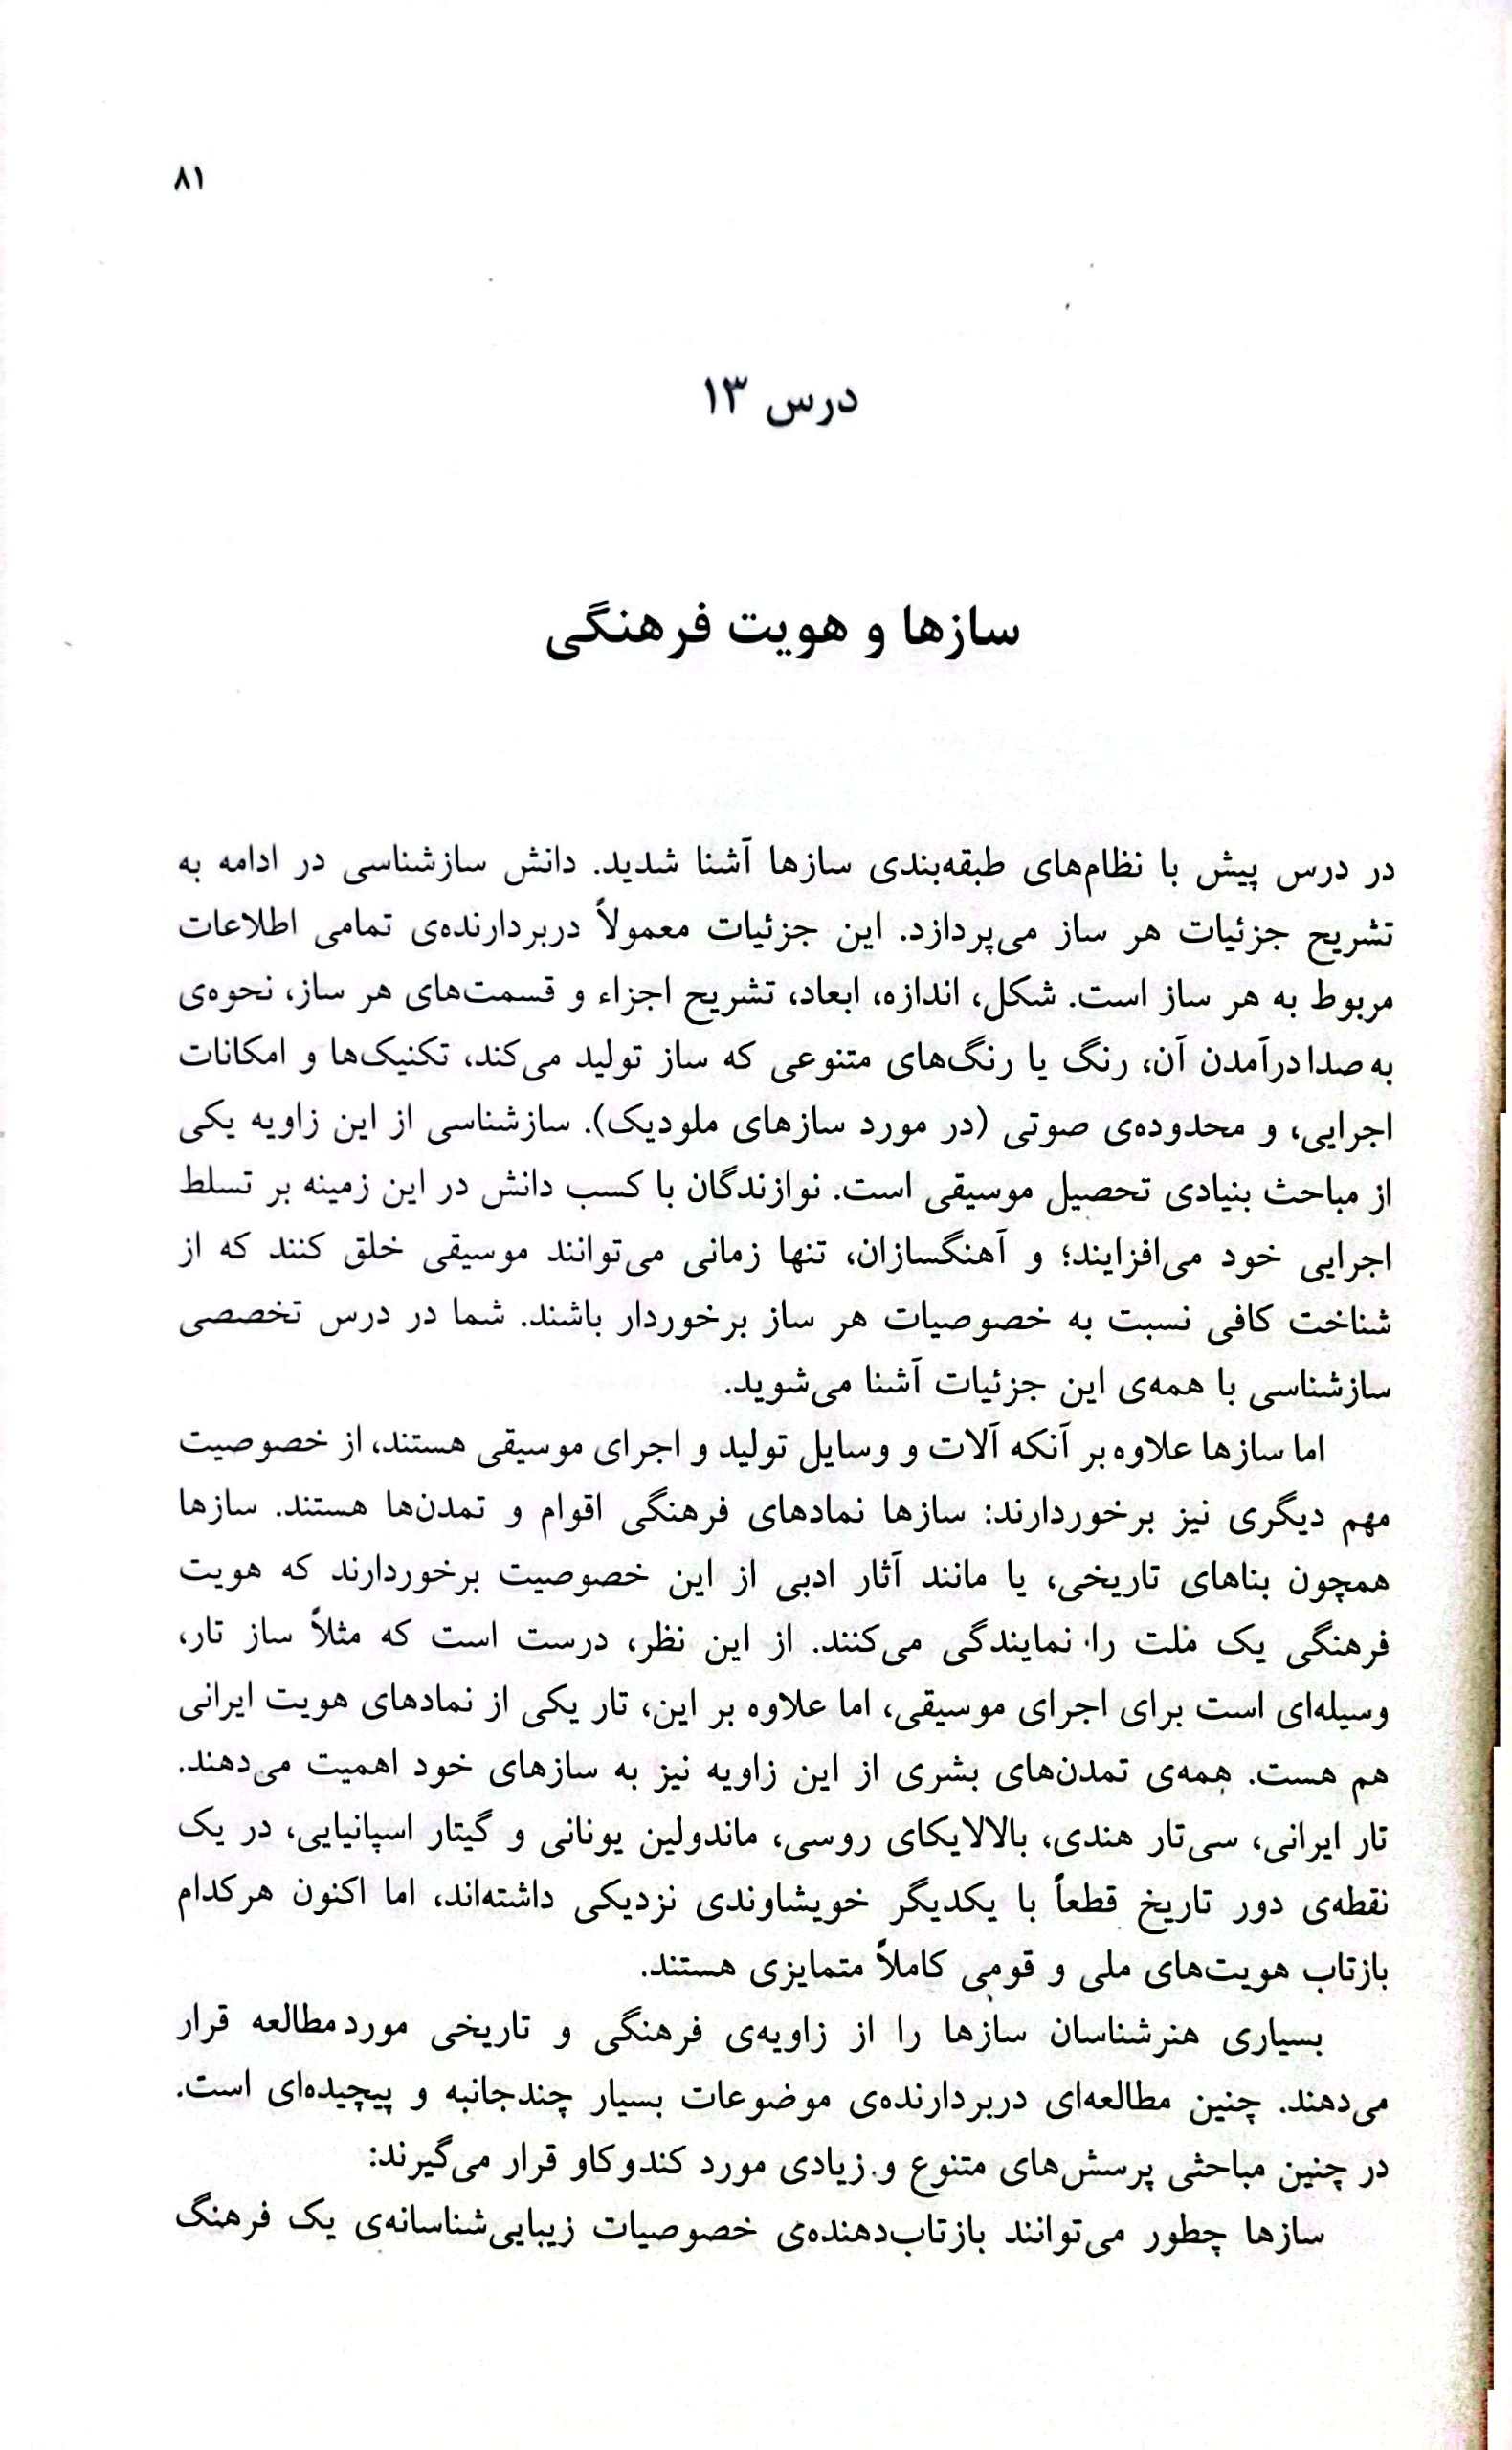 ۸۱
درس ۱۳
سازها و هویت فرهنگی
در درس پیش با نظام‌های طبقه‌بندی سازها آشنا شدید. دانش سازشناسی در ادامه به
تشریح جزئیات هر ساز می‌پردازد. این جزئیات معمولاً دربردارنده‌ی تمامی اطلاعات
مربوط به هر ساز است. شکل، اندازه، ابعاد، تشریح اجزاء و قسمت‌های هر ساز، نحوه‌ی
به صدا درآمدن آن، رنگ یا رنگ‌های متنوعی که ساز تولید می‌کند، تکنیک‌ها و امکانات
اجرایی، و محدوده‌ی صوتی (در مورد سازهای ملودیک). سازشناسی از این زاویه یکی
از مباحث بنیادی تحصیل موسیقی است. نوازندگان با کسب دانش در این زمینه بر تسلط
اجرایی خود می‌افزایند؛ و آهنگسازان، تنها زمانی می‌توانند موسیقی خلق کنند که از
شناخت کافی نسبت به خصوصیات هر ساز برخوردار باشند. شما در درس تخصصی
سازشناسی با همه‌ی این جزئیات آشنا می‌شوید.
اما سازها علاوه بر آنکه آلات و وسایل تولید و اجرای موسیقی هستند، از خصوصیت
مهم دیگری نیز برخوردارند: سازها نمادهای فرهنگی اقوام و تمدن‌ها هستند. سازها
همچون بناهای تاریخی، یا مانند آثار ادبی از این خصوصیت برخوردارند که هویت
فرهنگی یک ملت را نمایندگی می‌کنند. از این نظر، درست است که مثلاً ساز تار،
وسیله‌ای است برای اجرای موسیقی، اما علاوه بر این، تار یکی از نمادهای هویت ایرانی
هم هست. همه‌ی تمدن‌های بشری از این زاویه نیز به سازهای خود اهمیت می‌دهند.
تار ایرانی، سی‌تار هندی، بالالایکای روسی، ماندولین یونانی و گیتار اسپانیایی، در یک
نقطه‌ی دور تاریخ قطعاً با یکدیگر خویشاوندی نزدیکی داشته‌اند، اما اکنون هرکدام
بازتاب هویت‌های ملی و قومی کاملاً متمایزی هستند.
بسیاری هنرشناسان سازها را از زاویه‌ی فرهنگی و تاریخی مورد مطالعه قرار
می‌دهند. چنین مطالعه‌ای دربردارنده‌ی موضوعات بسیار چندجانبه و پیچیده‌ای است.
در چنین مباحثی پرسش‌های متنوع و زیادی مورد کندوکاو قرار می‌گیرند:
سازها چطور می‌توانند بازتاب‌دهنده‌ی خصوصیات زیبایی‌شناسانه‌ی یک فرهنگ